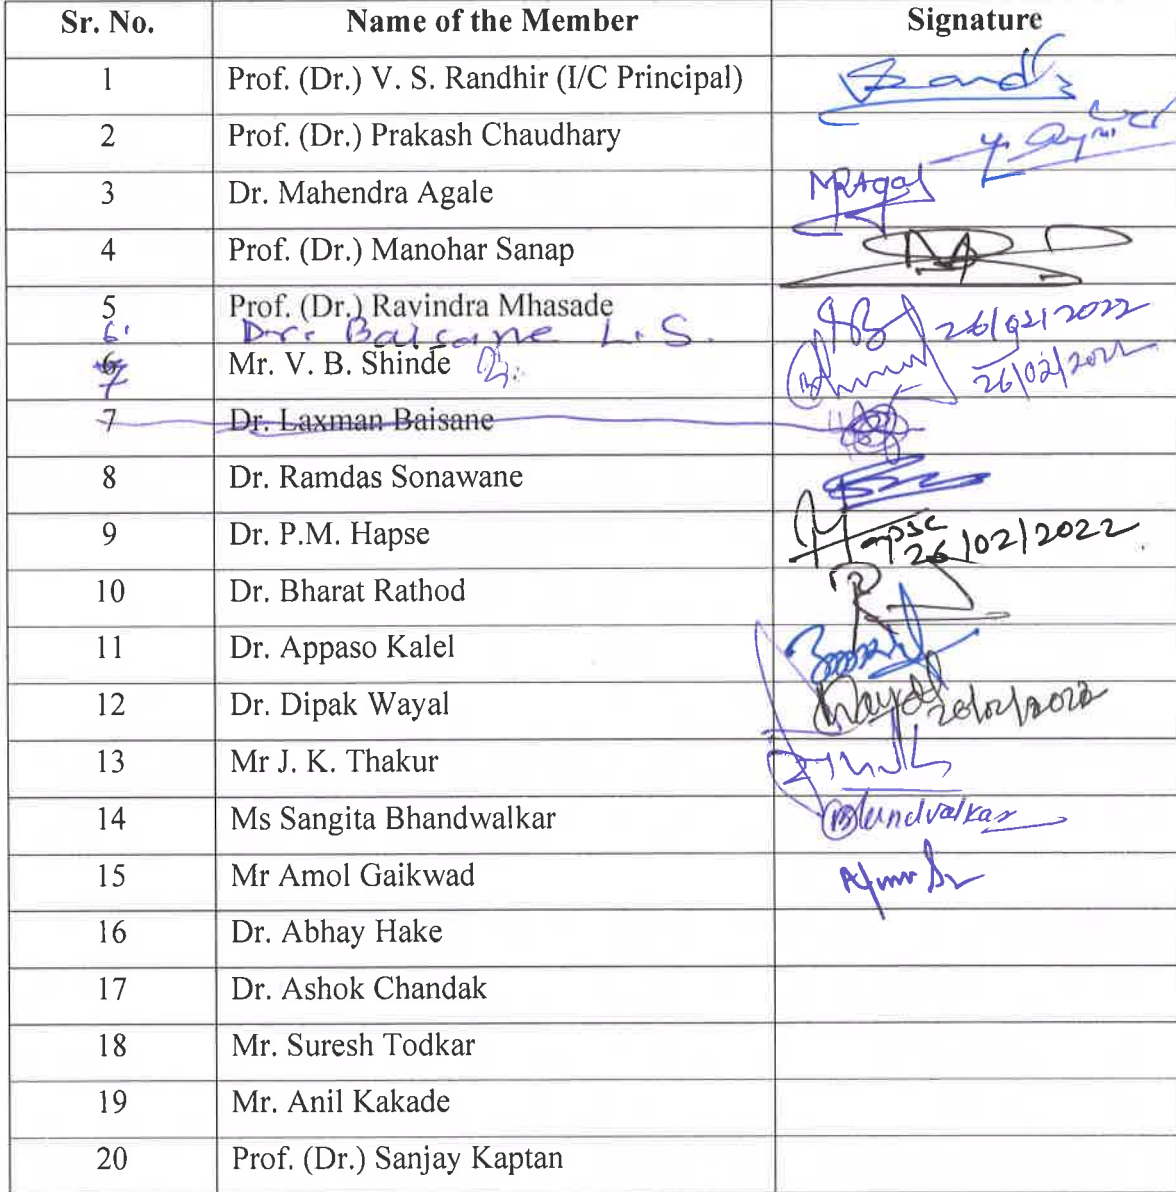 Sr. No. Name of the Member Signature
1 Prof. (Dr.) V. S. Randhir (I/C Principal)
2 Prof. (Dr.) Prakash Chaudhary
3 Dr. Mahendra Agale MRAgal
4 Prof. (Dr.) Manohar Sanap
5 Prof. (Dr.) Ravindra Mhasade 26/02/2022
6. Dr. Baisane L. S.
7 Mr. V. B. Shinde 26/02/2022
7 Dr. Laxman Baisane
8 Dr. Ramdas Sonawane
9 Dr. P.M. Hapse 26/02/2022
10 Dr. Bharat Rathod
11 Dr. Appaso Kalel
12 Dr. Dipak Wayal Wayal 26/02/2022
13 Mr J. K. Thakur
14 Ms Sangita Bhandwalkar Bhandvalkar
15 Mr Amol Gaikwad
16 Dr. Abhay Hake
17 Dr. Ashok Chandak
18 Mr. Suresh Todkar
19 Mr. Anil Kakade
20 Prof. (Dr.) Sanjay Kaptan